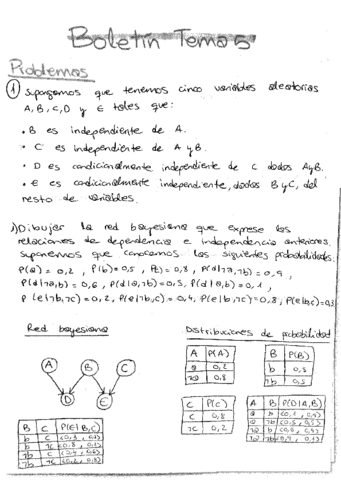 Boletín Tema 5
Problemas
1) Supongamos que tenemos cinco variables aleatorias
A, B, C, D y E tales que:
• B es independiente de A.
• C es independiente de A y B.
• D es condicionalmente independiente de C dados A y B.
• E es condicionalmente independiente, dados B y C, del
resto de variables.
Dibujar la red bayesiana que exprese las
relaciones de dependencia e independencia anteriores.
Suponemos que conocemos las siguientes probabilidades:
P(a) = 0,2, P(b)=0,5, = 0,8,
P(d|¬a,b) = 0,6, P(d|a,b) = 0,1,
P(e|¬b,¬c) = 0,2, P(e|¬b,c) = 0,4, P(e|b,¬c)=0,8, P(e|b,c)=0,3
Red bayesiana
Distribuciones de probabilidad
A B C
D E
A P(A)
a 0,2
¬a 0,8
B P(B)
b 0,5
¬b 0,5
C P(C)
c 0,8
¬c 0,2
A B P(D|A,B)
B C P(E|B,C)